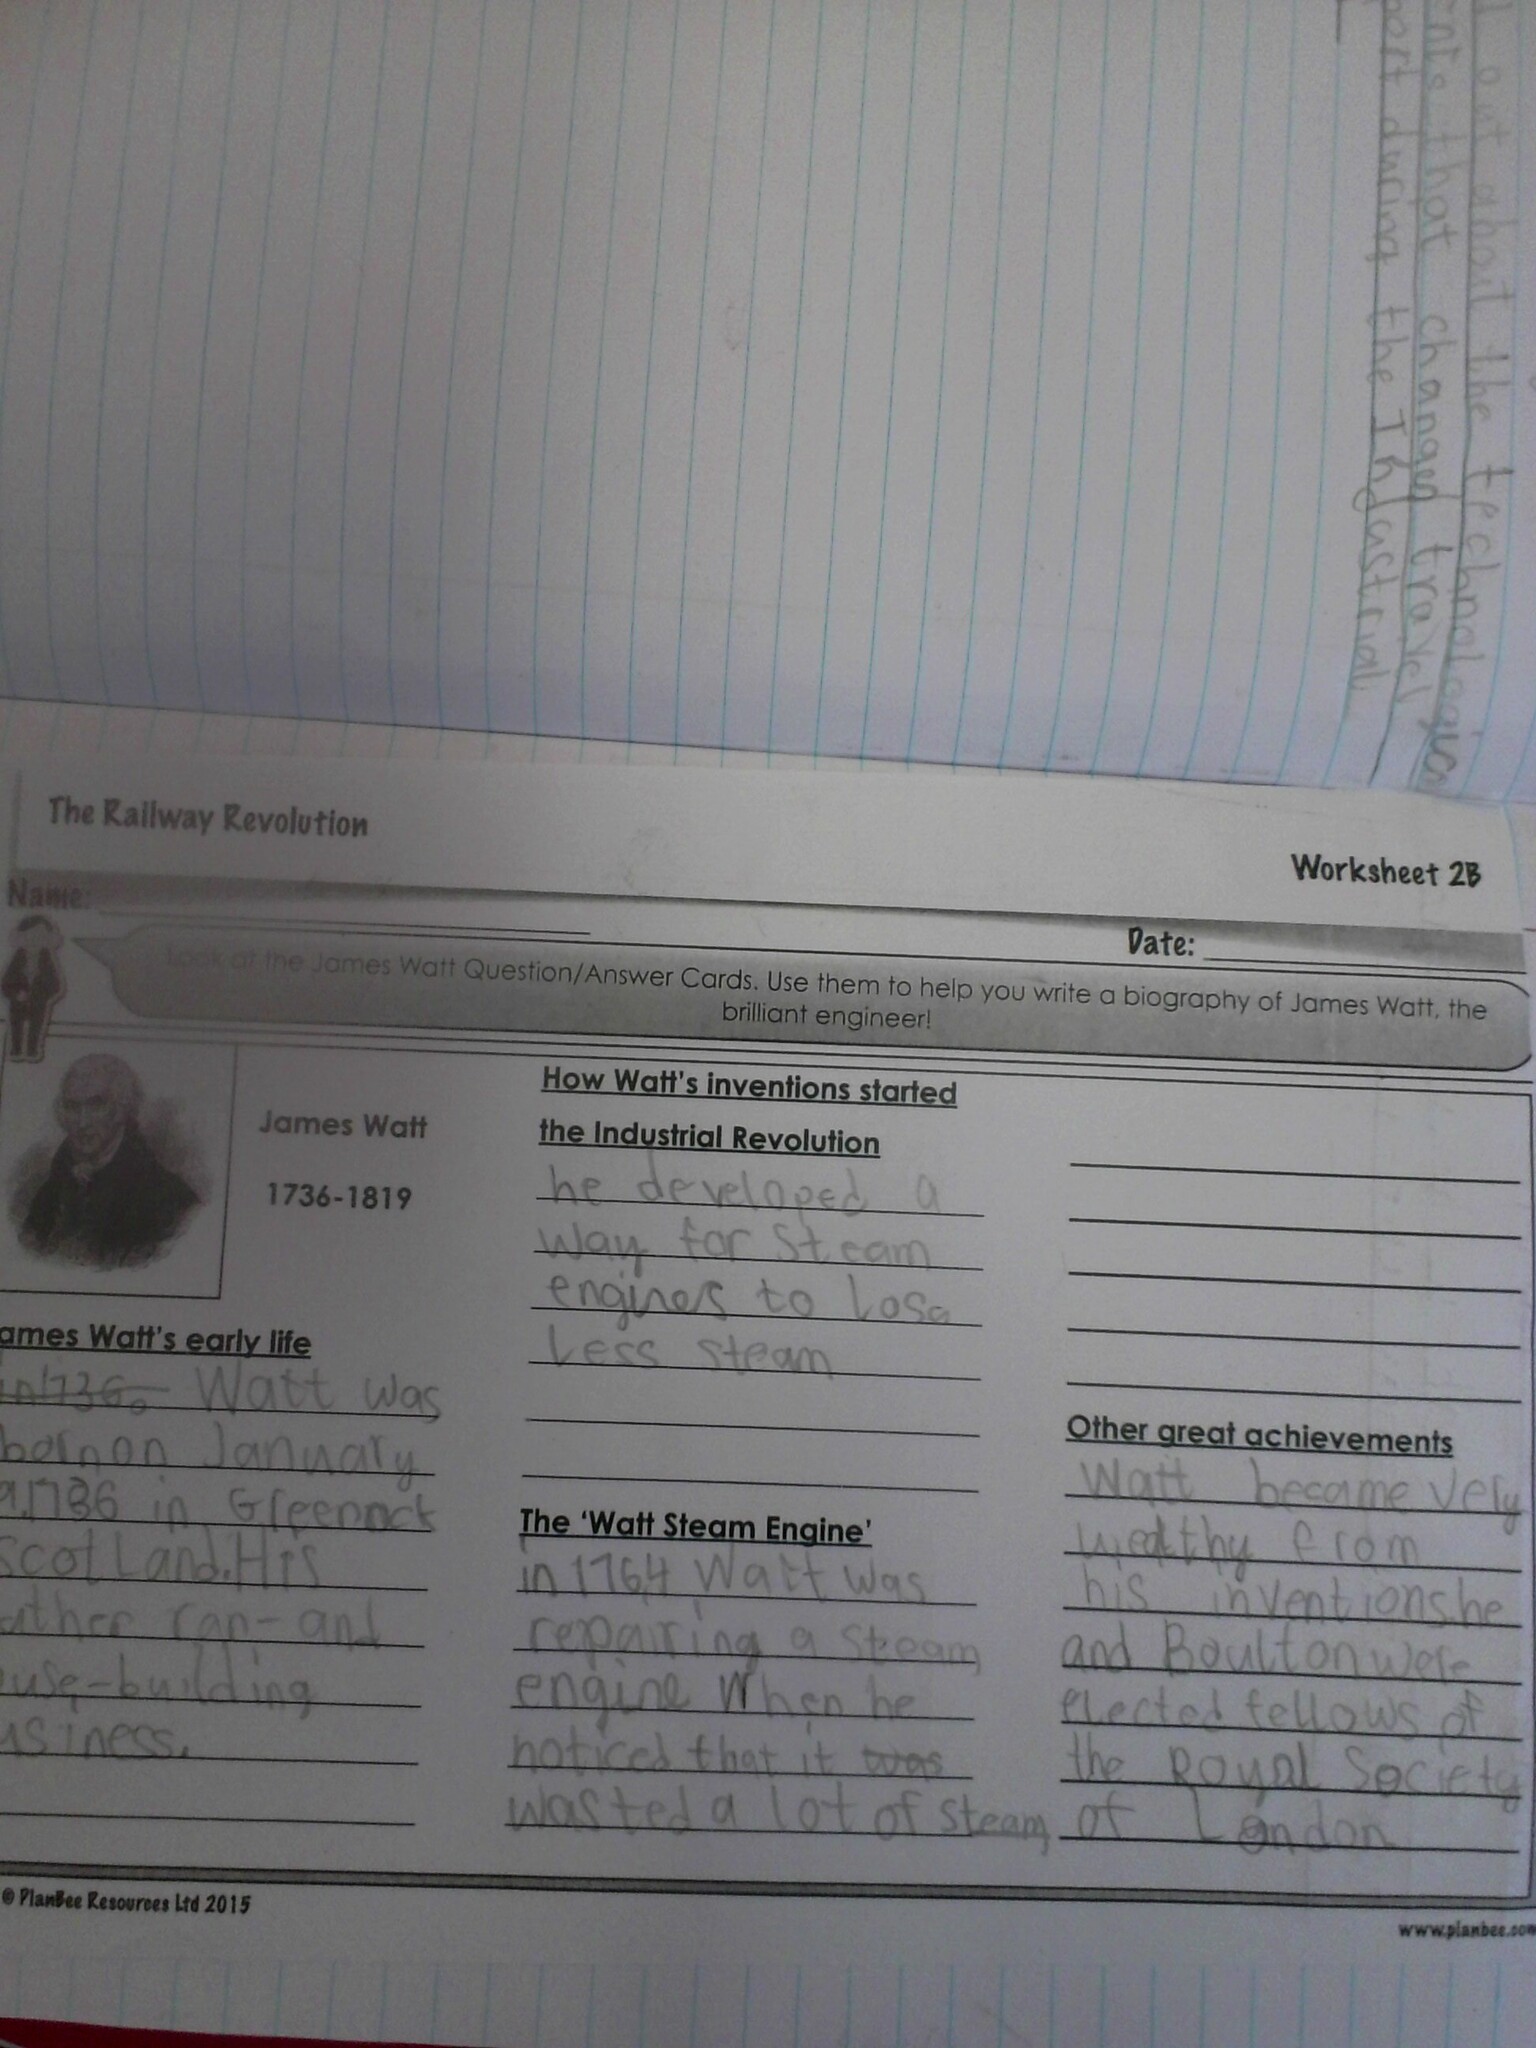 l out about the technologic
nts that changed travel
port during the Industrial
The Railway Revolution
Worksheet 2B
Name:
Date:
Look at the James Watt Question/Answer Cards. Use them to help you write a biography of James Watt, the
brilliant engineer!
James Watt
1736-1819
ames Watt's early life
in 1736. Watt was
born on January
1736 in Greenock
Scotland. His
ather ran- and
use-building
usiness.
How Watt's inventions started
the Industrial Revolution
he developed a
way for steam
engines to lose
less steam
The 'Watt Steam Engine'
in 1764 Watt was
repairing a steam
engine when he
noticed that it was
wasted a lot of steam
Other great achievements
Watt became very
wealthy from
his inventions. he
and Boulton were
elected fellows of
the Royal Society
of London
© PlanBee Resources Ltd 2015
www.planbee.com